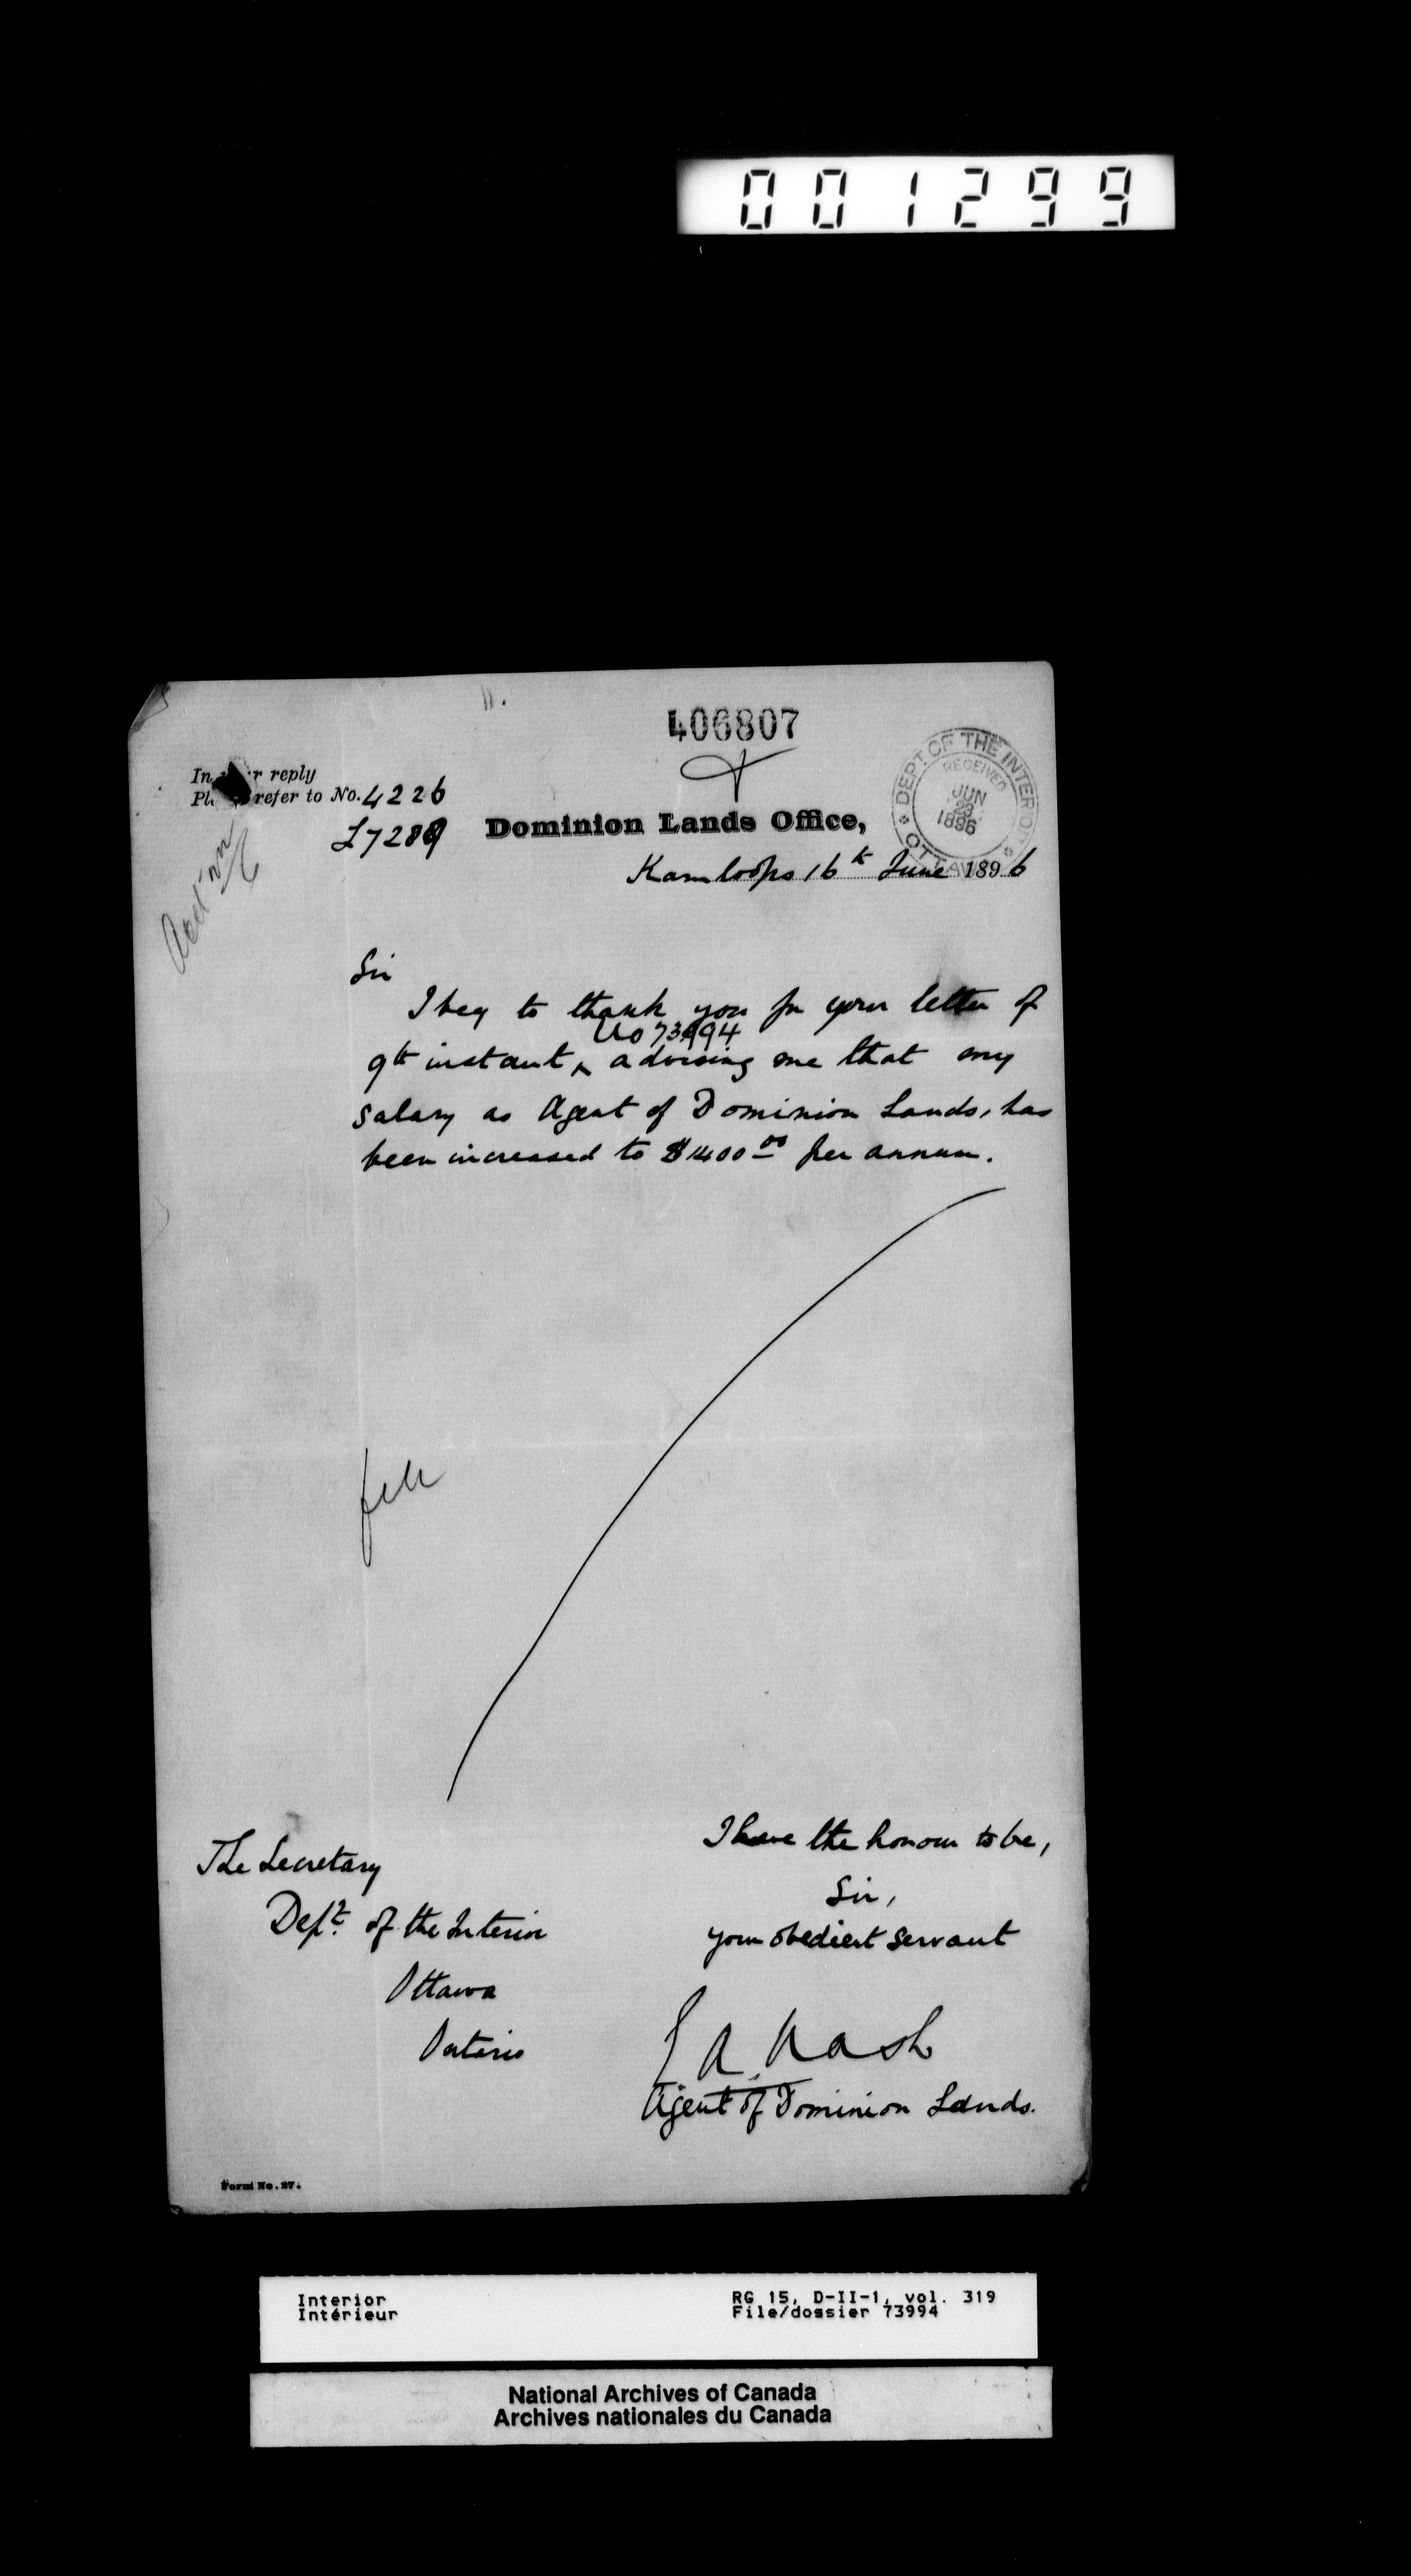 001299
406807
In your reply
Please refer to No. 4226
L7289
DEPT. OF THE INTERIOR
RECEIVED
JUN
23
1896
OTTAWA
Dominion Lands Office,
Kamloops 16th June 1896
Sir
I beg to thank you for your letter of
No 73994
9th instant, ^ advising me that my
salary as Agent of Dominion Lands, has
been increased to $1400 00 per annum.
I have the honour to be,
Sir,
your obedient servant
The Secretary
Dept. of the Interior
Ottawa
Ontario
E A Nash
Agent of Dominion Lands.
Form No. 27.
Interior
Intérieur
RG 15, D-II-1, vol. 319
File/dossier 73994
National Archives of Canada
Archives nationales du Canada